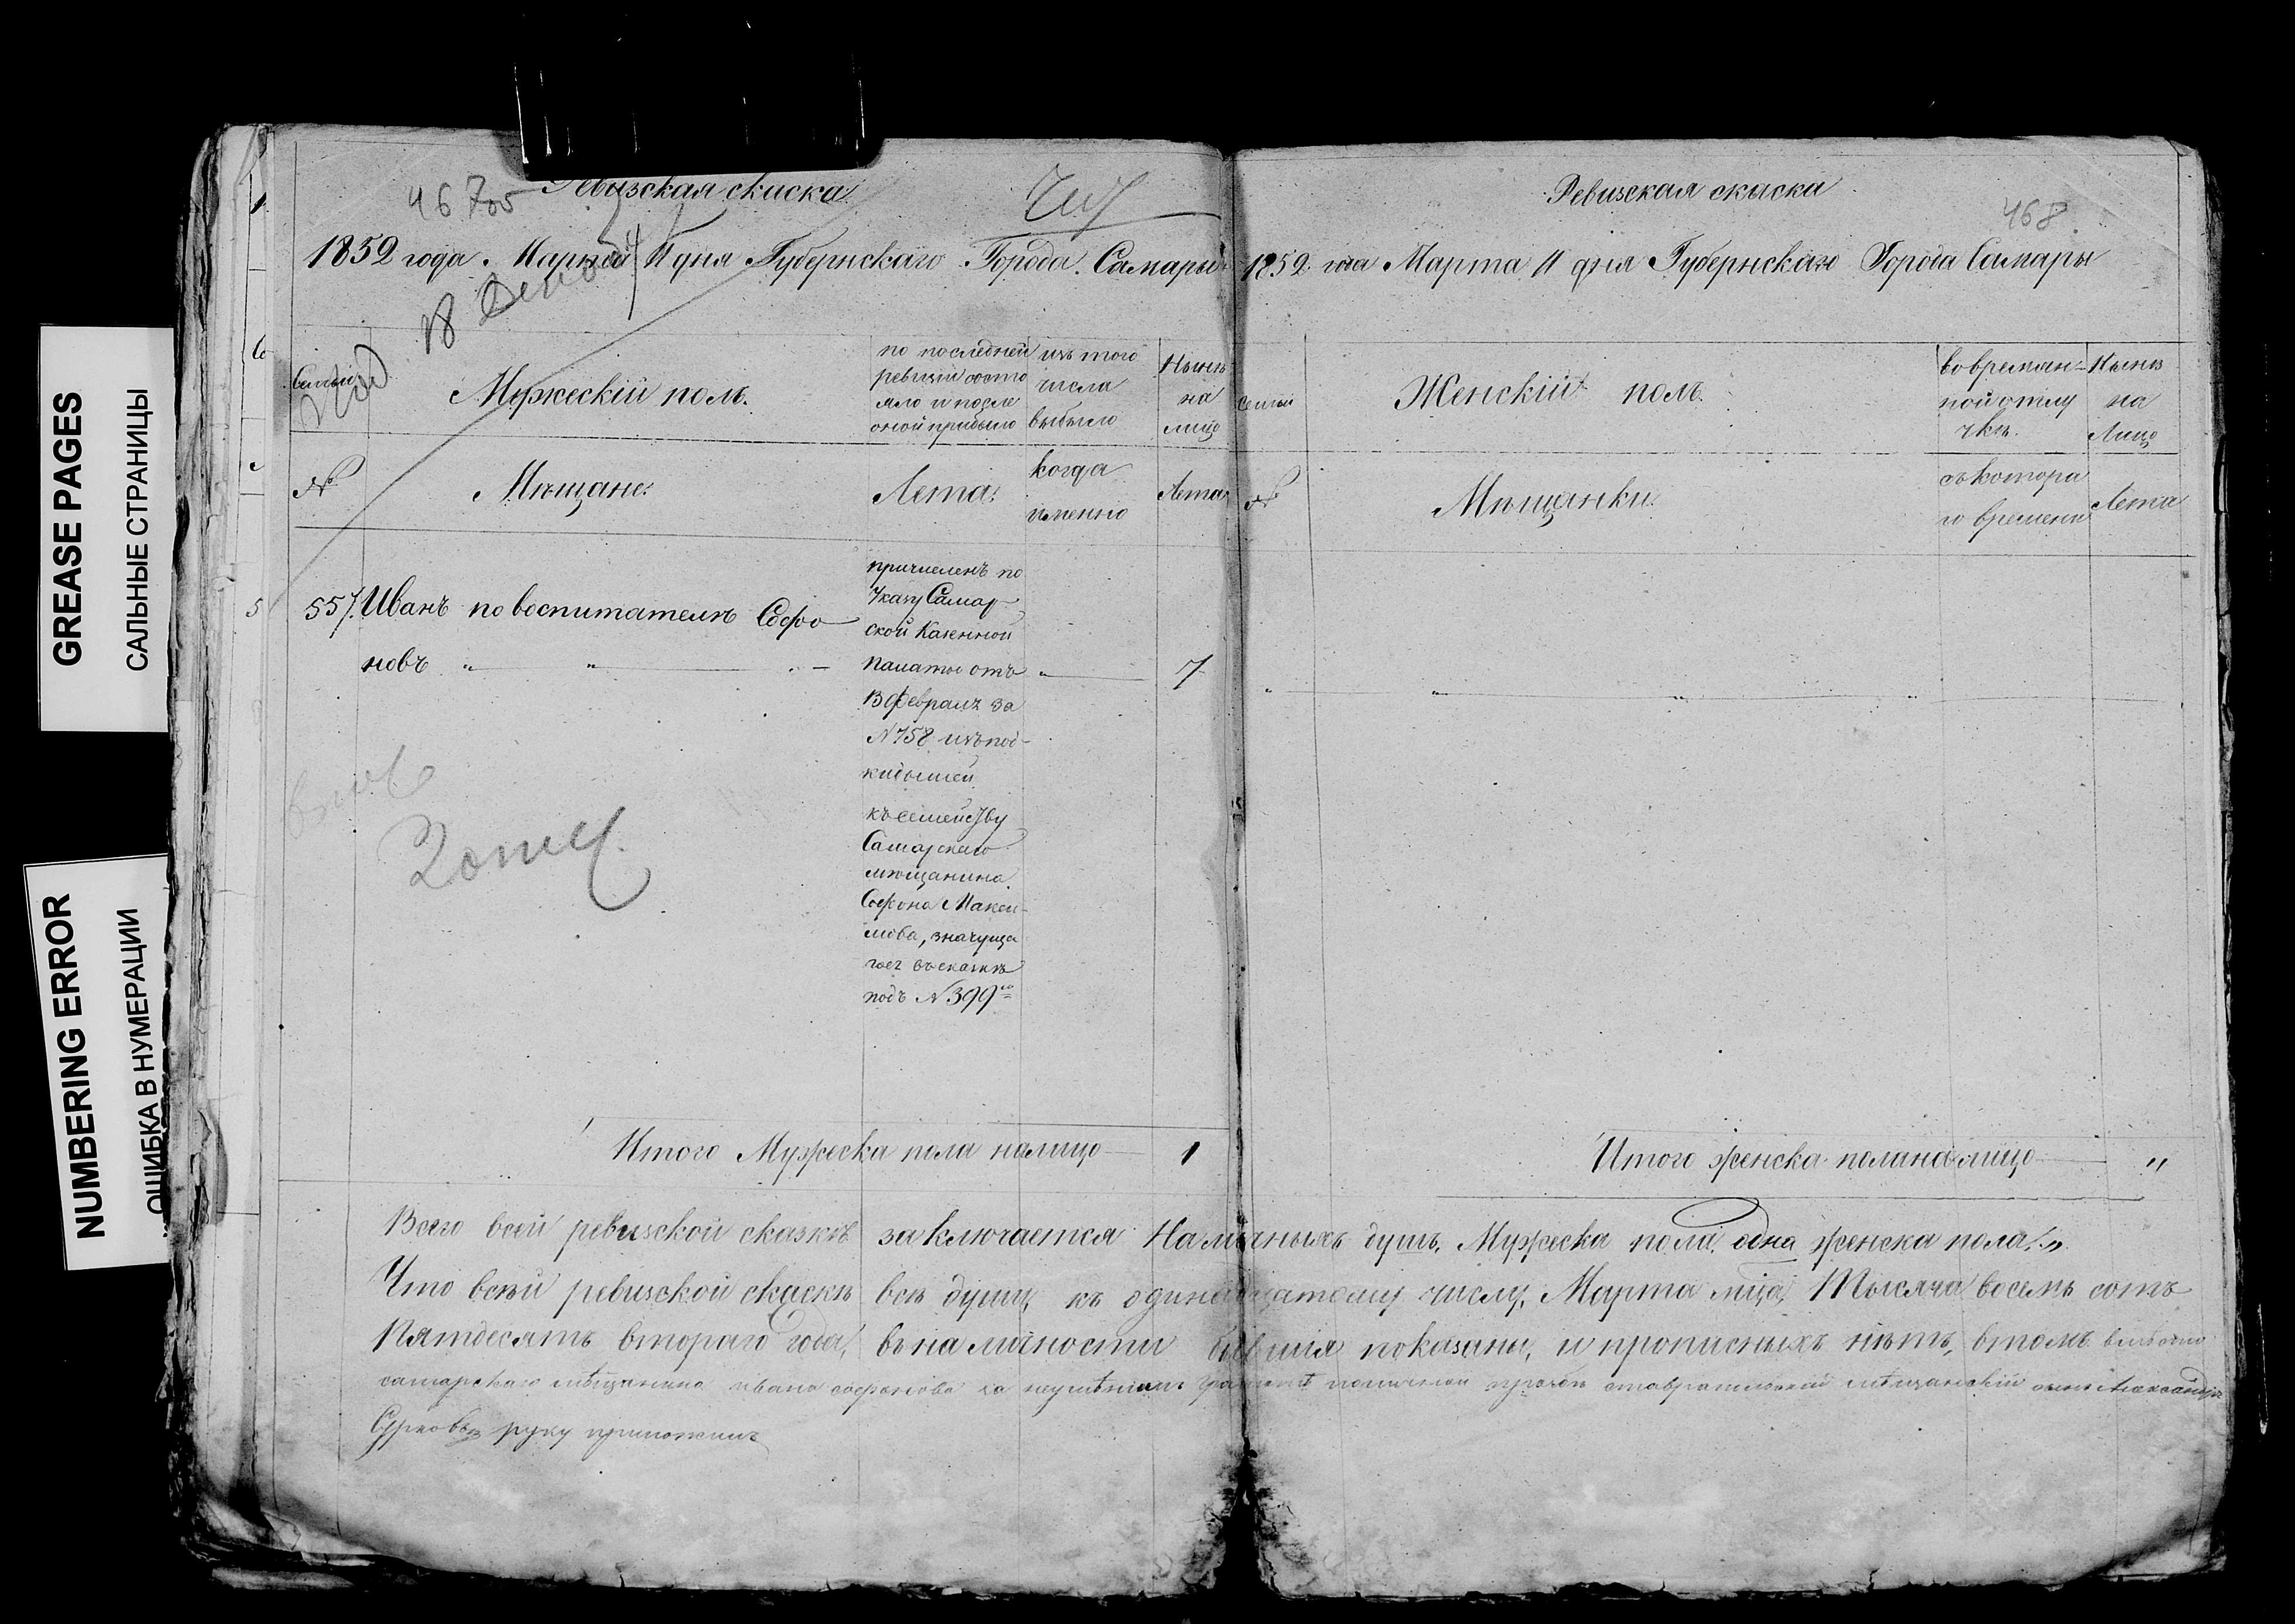 GREASE PAGES
САЛЬНЫЕ СТРАНИЦЫ
NUMBERING ERROR
ОШИБКА В НУМЕРАЦИИ
467об
Ревизская скаска
1852 года Марта 11 дня Губернскаго Города Самары
Семьи
Мужескій полъ.
по последней
ревизіи состо
яло и после
оной прибыло
изъ того
числа
выбыло
Ныне
на
лицо
№
Мещане:
Лета:
когда
именно
Лета
557. Иванъ по воспитателе Софо
новъ " " 7
причисленъ по
Указу Самар-
ской Казенной
палаты отъ
Февраля за
№ 758 изъ под-
кидышей
къ семейству
Самарскаго
мещанина
Софона Макси-
мова, значуща
гося въ скаске
подъ № 399го
Итого Мужеска пола налицо 1
Ревизская скаска
468
1852 года Марта 11 дня Губернскаго Города Самары
Семьи
Женскій полъ.
во времян-
ной отлу
чке.
Ныне
на
Лицо
№
Мещанки.
съ котора
го времени
Лета
" " " "
Итого женска пола налицо "
Всего всей ревизской сказке заключается Наличныхъ душъ, Мужеска пола, одна женска пола „
Что всей ревизской скаске все души, къ одинадцатому числу, Марта мца, Тысяча восемь сотъ
Пятдесятъ втораго года, въ наличности бывшия показаны, и прописныхъ нетъ, в томъ вместо
самарскаго мещанина ивана софонова за неуменіем грамоте по личной прозбе ставропольский мещанский сынъ Александръ
Сурковъ руку приложилъ